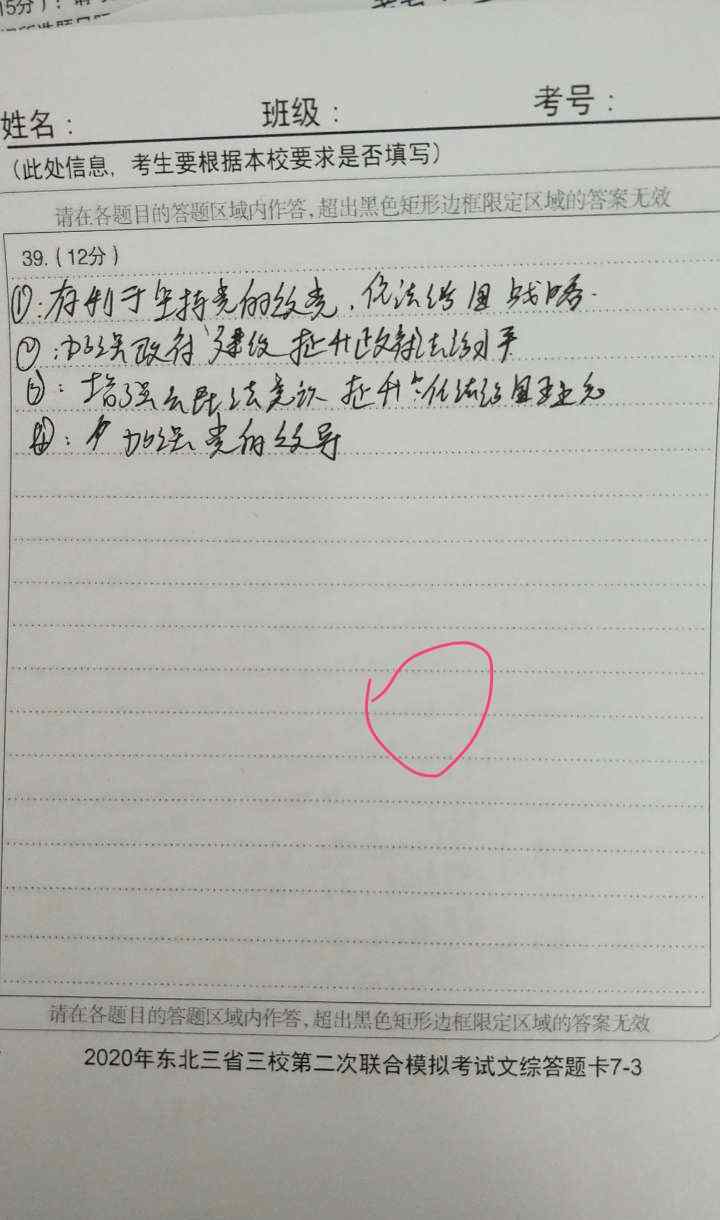 15分
姓名： 班级： 考号：
（此处信息，考生要根据本校要求是否填写）
请在各题目的答题区域内作答，超出黑色矩形边框限定区域的答案无效
39.（12分）
①：有利于坚持党的 ，依法治国战略.
②：加强政府建设 提升政府法治水平
③：增强公民法意识 提升 依法治国
④： 加强党的领导
请在各题目的答题区域内作答，超出黑色矩形边框限定区域的答案无效
2020年东北三省三校第二次联合模拟考试文综答题卡7-3